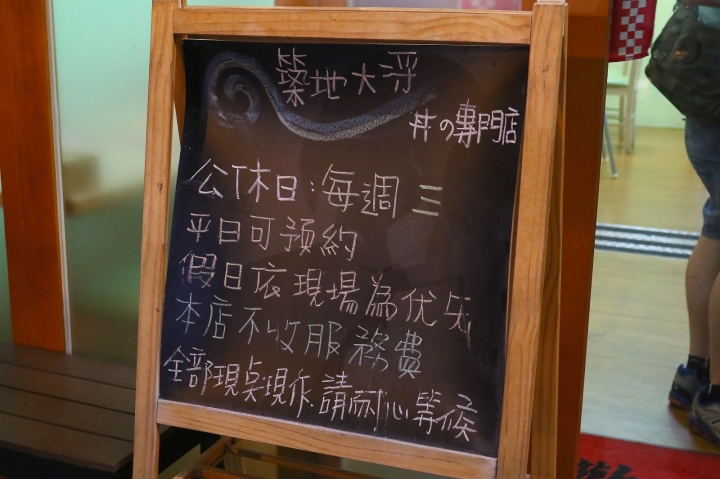 築地大将
丼の專門店
公休日:每週三
平日可預約
假日依現場為优先
本店不收服務費
全部現桌現作.請耐心等候